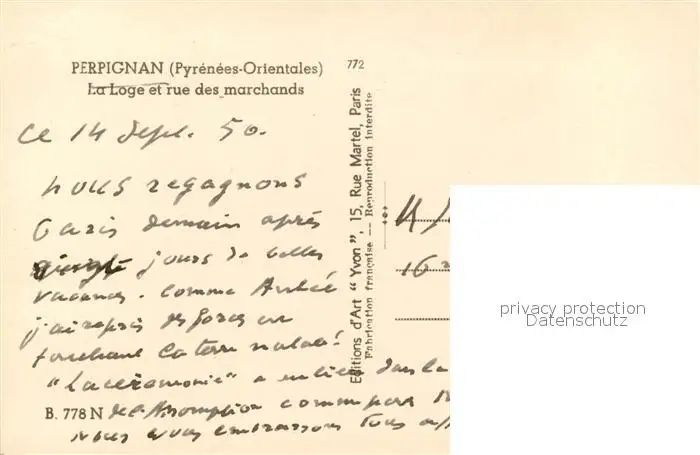 PERPIGNAN (Pyrénées-Orientales)
La Loge et rue des marchands
772
Ce 14 Sept. 50.
nous regagnons
Paris demain après
quinze jours de belles
vacances. Comme Antée
j'ai repris des forces en
touchant la terre natale!
"La cérémonie" a eu lieu dans la
B. 778 N
de l'Assomption comme pour
nous vous embrassons tous
Editions d'Art "Yvon", 15, Rue Martel, Paris
Fabrication française -- Reproduction interdite
16
privacy protection
Datenschutz